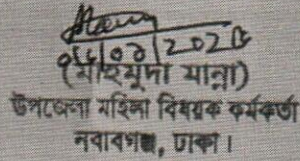 (মাহমুদা মান্না)
উপজেলা মহিলা বিষয়ক কর্মকর্তা
নবাবগঞ্জ, ঢাকা।